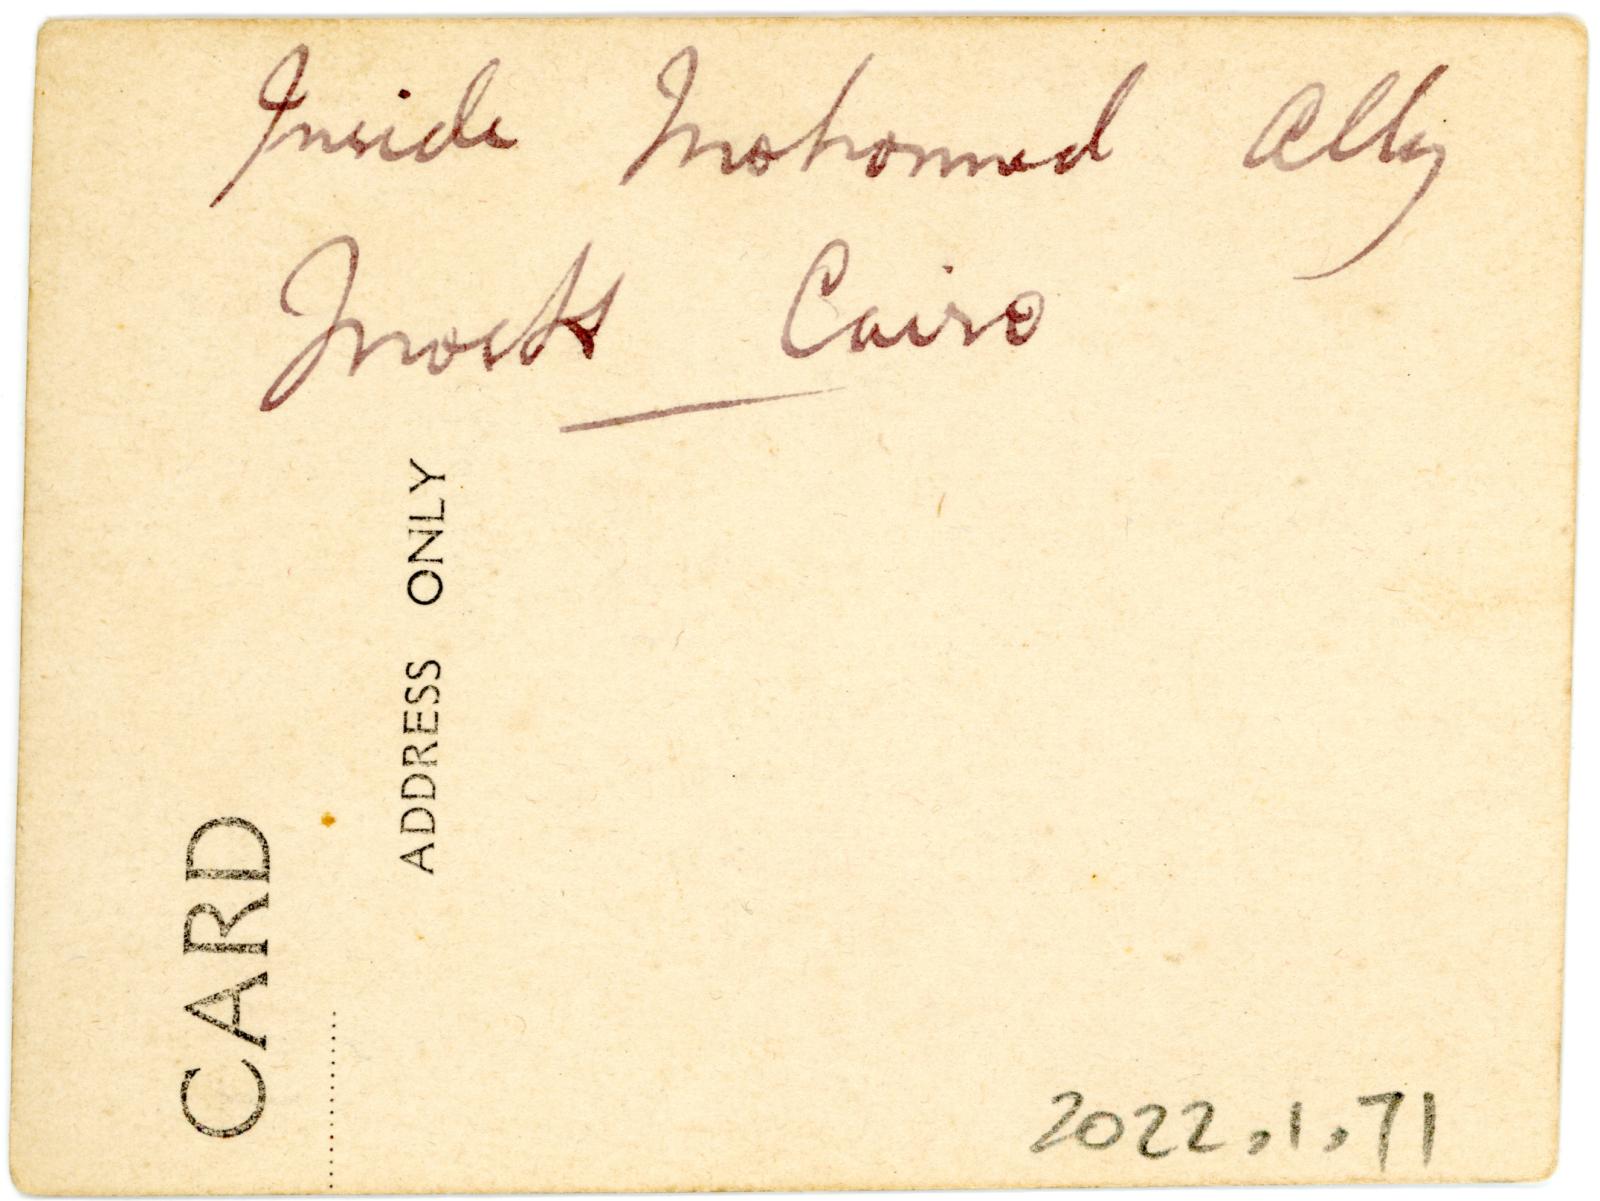 Inside Mohommed Ally
Mosk Cairo
ADDRESS ONLY
CARD
2022.1.71